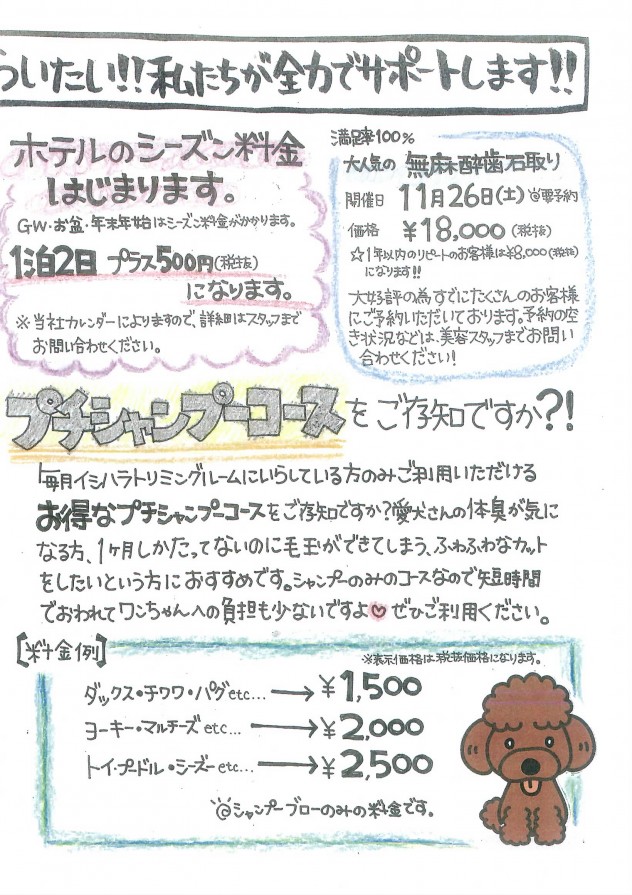 らいたい!!私たちが全力でサポートします!!
ホテルのシーズン料金
はじまります。
GW・お盆・年末年始はシーズン料金がかかります。
1泊2日 プラス500円(税抜)
になります。
※当社カレンダーによりますので、詳細はスタッフまで
お問い合わせください。
満足率100%
大人気の 無麻酔歯石取り
開催日 11月26日(土) @要予約
価格 ¥18,000 (税抜)
☆1年以内のリピートのお客様は¥8,000(税抜)
になります!!
大好評の為すでにたくさんのお客様
にご予約いただいております。予約の空
き状況などは、美容スタッフまでお問い
合わせください!
プチシャンプーコースをご存知ですか?!
毎月イシハラトリミングルームにいらしている方のみご利用いただける
お得なプチシャンプーコースをご存知ですか?愛犬さんの体臭が気に
なる方、1ヶ月しかたってないのに毛玉ができてしまう、ふわふわなカット
をしたいという方におすすめです。シャンプーのみのコースなので短時間
でおわれてワンちゃんへの負担も少ないですよ♡ ぜひご利用ください。
[料金例]
※表示価格は税抜価格になります。
ダックス・チワワ・パグetc...→¥1,500
ヨーキー・マルチーズetc...→¥2,000
トイ・プードル・シーズーetc...→¥2,500
@シャンプーブローのみの料金です。